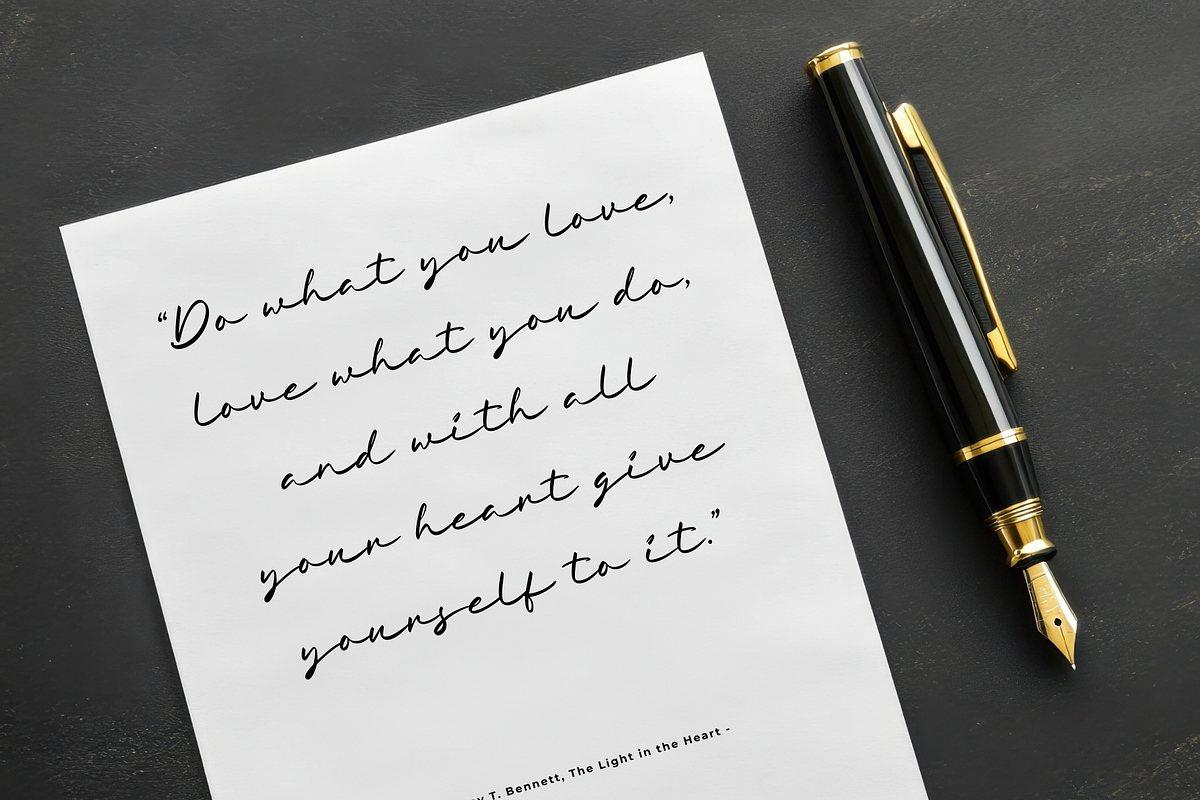 “Do what you love,
love what you do,
and with all
your heart give
yourself to it.”
T. Bennett, The Light in the Heart -